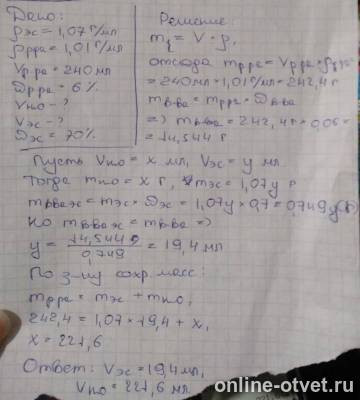 Дано:
ρэс = 1,07 г/мл
ρрра = 1,01 г/мл
Vр.ра = 240 мл
ωрра = 6 %
VH₂O - ?
Vэс - ?
ωэс = 70%
Решение
m = V · ρ,
отсюда mрра = Vрра × ρрра =
= 240 мл × 1,01 г/мл = 242,4 г
mв-ва = mрра × ωв-ва
=> mв-ва = 242,4 г × 0,06 =
= 14,544 г
Пусть VH₂O = x мл, Vэс = y мл
Тогда mH₂O = x г, mэс = 1,07y г
mв-ва эс = mэс × ωэс = 1,07y × 0,7 = 0,749y (г)
Но mв-ва эс = mв-ва =>
y = 14,544 / 0,749 = 19,4 мл
По з-ну сохр. масс:
mрра = mэс + mH₂O,
242,4 = 1,07 × 19,4 + x,
x = 221,6
Ответ: Vэс = 19,4 мл,
VH₂O = 221,6 мл
online-otvet.ru